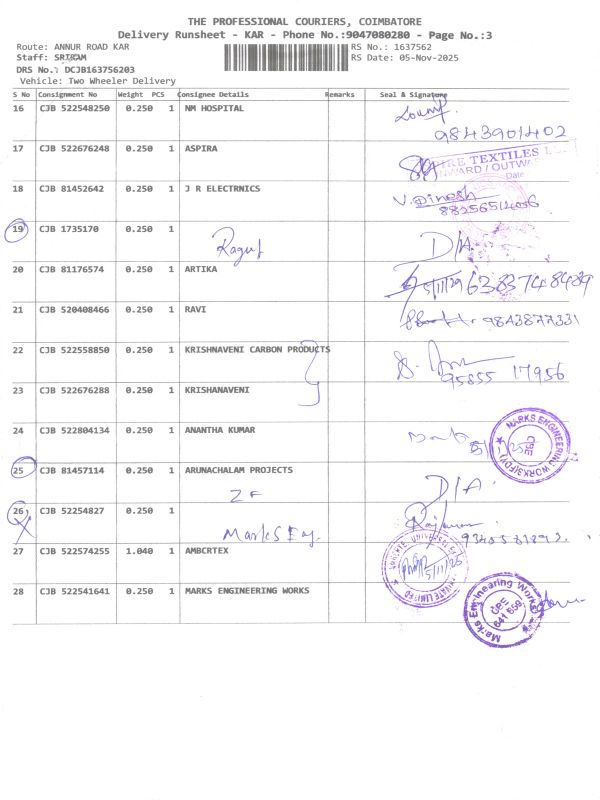 THE PROFESSIONAL COURIERS, COIMBATORE
Delivery Runsheet - KAR - Phone No.:9047080280 - Page No.:3
Route: ANNUR ROAD KAR RS No.: 1637562
Staff: SRIRAM RS Date: 05-Nov-2025
DRS No.: DCJB163756203
Vehicle: Two Wheeler Delivery
S No Consignment No Weight PCS Consignee Details Remarks Seal & Signature
16 CJB 522548250 0.250 1 NM HOSPITAL
9843901402
17 CJB 522676248 0.250 1 ASPIRA
TEXTILES
Date
18 CJB 81452642 0.250 1 J R ELECTRNICS V. Dinesh
19 CJB 1735170 0.250 1
D/A
20 CJB 81176574 0.250 1 ARTIKA 6383748489
21 CJB 520408466 0.250 1 RAVI 9843877331
22 CJB 522558850 0.250 1 KRISHNAVENI CARBON PRODUCTS
95855 17956
23 CJB 522676288 0.250 1 KRISHANAVENI
24 CJB 522804134 0.250 1 ANANTHA KUMAR
MARKS ENGINEERING WORKS
CBE
25 CJB 81457114 0.250 1 ARUNACHALAM PROJECTS D/A
ZF
26 CJB 52254827 0.250 1
Marks Eng.
27 CJB 522574255 1.040 1 AMBCRTEX
PRIVATE LIMITED
28 CJB 522541641 0.250 1 MARKS ENGINEERING WORKS
Marks Engineering Works
CBE
641 659